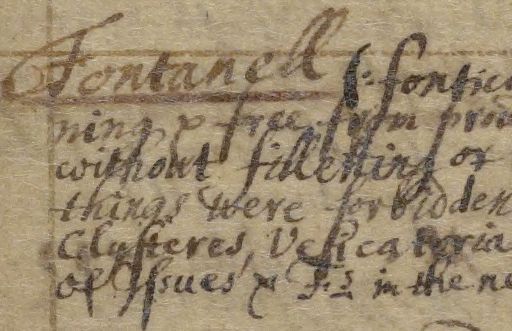 Fontanell s: fontic
ning, & free from prov
without filletting or
things were forbidden
Clysteres, Vesicatoria
of Issues & Fs in the ne